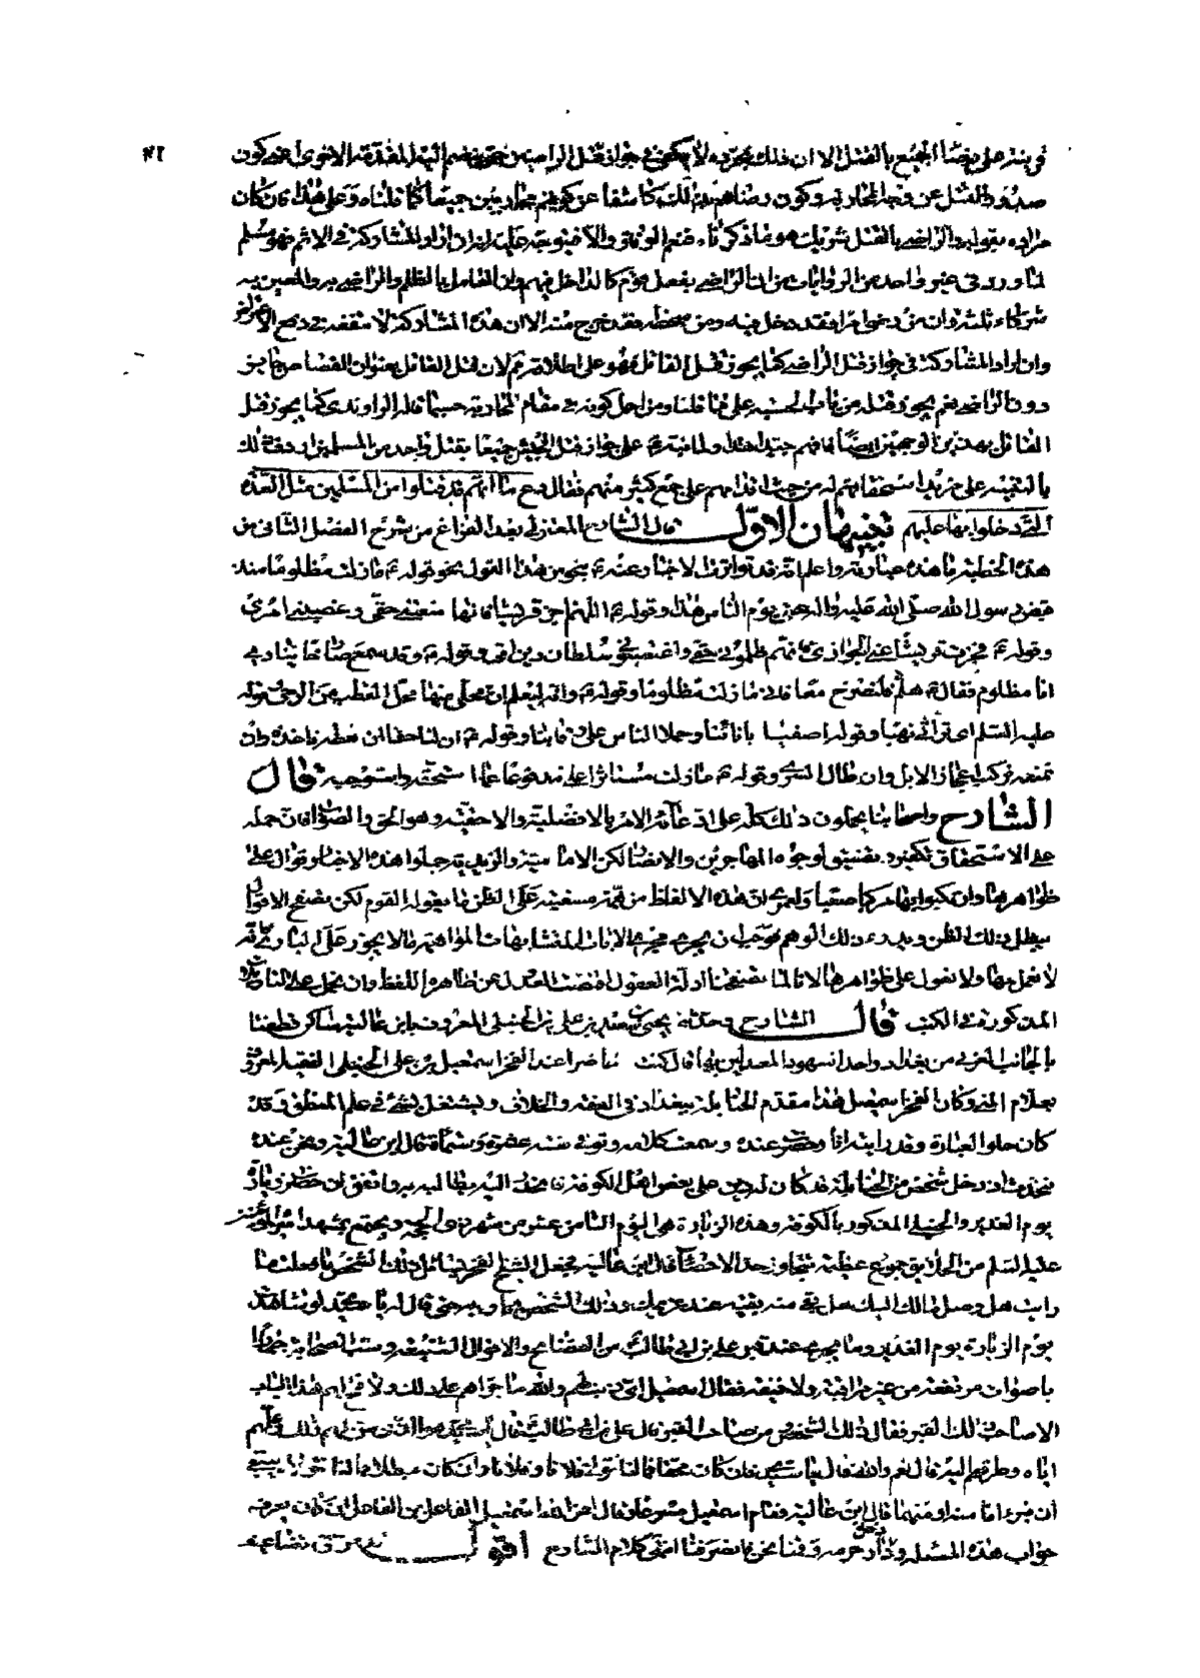 صدور القتل عن وجه المحاربة وكون رضاهم بذلك كاشفا عن كونهم محاربين جميعا كما قلناه وعلى هذا فان كان
مراده بقوله والراضى بالقتل شريك هو ما ذكرناه فنعم الوفاق والا فيتوجه عليه انه ان اراد المشاركة فى الاثم فهو مسلم
لما ورد فى غير واحد من الروايات من ان الراضى بفعل قوم كالداخل فيهم وان العامل بالظلم والراضى به والمعين به
شركاء ثلثة وان من رضى امرا فقد دخل فيه ومن سخطه فقد خرج منه الا ان هذه المشاركة لا
وان اراد المشاركة فى جواز قتل الراضى كما يجوز قتل القاتل فهو على اطلاقه مم لان قتل القاتل بعنوان القصاص جايز
دون الراضى نعم يجوز قتله من باب الحسبة على ما قلنا ومن اجل كونه فى مقام المحاربة حسبما قاله الراوندى كما يجوز قتل
القاتل بهذين الوجهين ايضا فافهم جيدا هذا ولما نبه ع على جواز قتل الجيش جميعا بقتل واحد من المسلمين اردفه بذلك
بالتنبيه على مزيد استحقاقهم له من حيث اقدامهم على جمع كثير منهم فقال دع ما انهم قد قتلوا من المسلمين مثل العدة
التى دخلوا بها عليهم تنبيهان الاول قال الشارح المعتزلى بعد الفراغ من شرح الفصل الثانى من
هذه الخطبة ما هذه عبارته واعلم انه قد تواترت الاخبار عنه ع بنحو من هذا القول نحو قوله ع ما زلت مظلوما منذ
قبض رسول الله صلى الله عليه واله حتى يوم الناس هذا وقوله ع اللهم اجز قريشا فانها منعتنى حقى وغصبتنى امرى
وقوله ع فجزت قريشا عنى الجوازى فانهم ظلمونى حقى واغتصبونى سلطان ابن امى وقوله ع وقد سمع صارخا ينادى
انا مظلوم فقال ع هلم فلنصرخ معا فانى ما زلت مظلوما وقوله ع وانه ليعلم ان محلى منها محل القطب من الرحى وقوله
عليه السلم ارى تراثى نهبا وقوله اصغيا بانائنا وحملا الناس على رقابنا وقوله ع ان لنا حقا ان نعطه ناخذه وان
نمنعه نركب اعجاز الابل وان طال السرى وقوله ع ما زلت مستاثرا على مدفوعا عما استحقه واستوجبه قال
الشارح واصحابنا يحملون ذلك كله على ادعائه الامر بالافضلية والاحقية وهو الحق والصواب فان حمله
على الاستحقاق تكفير و تفسيق لوجوه المهاجرين والانصار لكن الامامية والزيدية حملوا هذه الاخبار والاقوال على
ظواهرها وارتكبوا بها مركبا صعبا ولعمرى ان هذه الالفاظ موهمة مغلبة على الظن ما يقوله القوم لكن تصفح الاقوال
يبطل ذلك الظن ويدرء ذلك الوهم فوجب ان يجرى مجرى الايات المتشابهات الموهمة ما لا يجوز على البارى فانه
لا نعمل بها ولا نعول على ظواهرها لانا لما تصفحنا ادلة العقول اقتضت العدول عن ظاهر اللفظ وان تحمل على التاويلات
المذكورة فى الكتب قال الشارح وحدثنى يحيى بن سعيد بن على الحنبلى المعروف بابن عالية ساكن قطفتا
بالجانب الغربى من بغداد واحد الشهود المعدلين بها قال كنت حاضرا عند الفخر اسمعيل بن على الحنبلى الفقيه المعروف
بغلام المنى وكان الفخر اسمعيل هذا مقدم الحنابلة ببغداد فى الفقه والخلاف ويشتغل بشئ فى علم المنطق وقد
كان حلو العبارة وقد رايته انا وحضرت عنده وسمعت كلامه وتوفى سنة عشر وستمائة قال ابن عالية ونحن عنده
نتحدث اذ دخل شخص من الحنابلة قد كان له دين على بعض اهل الكوفة فانحدر اليه يطالبه به واتفق ان حضر زيارة
يوم الغدير والحنبلى المذكور بالكوفة وهذه الزيارة هى اليوم الثامن عشر من شهر ذى الحجة ويجتمع بمشهد امير المؤمنين
عليه السلم من الخلايق جموع عظيمة تتجاوز حد الاحصاء قال ابن عالية فجعل الشيخ الفخر يسائل ذلك الشخص ما فعلت ما
رايت هل وصل مالك اليك هل بقى منه بقية عند غريمك وذلك الشخص يجاوبه حتى قال له يا سيدى لو شاهدت
يوم الزيارة يوم الغدير وما يجرى عند قبر على بن ابى طالب من الفضايح والاقوال الشنيعة وسب الصحابة جهارا
باصوات مرتفعة من غير مراقبة ولا خيفة فقال اسمعيل اى ذنب لهم والله ما جراهم على ذلك ولا فتح لهم هذا الباب
الا صاحب ذلك القبر فقال ذلك الشخص من صاحب القبر قال على بن ابى طالب فقال يا سيدى هو الذى سن لهم ذلك وعلمهم
اياه وطرقهم اليه قال نعم والله قال يا سيدى فان كان محقا فما لنا نتولى فلانا وفلانا وان كان مبطلا فما لنا نتولاه ينبغى
ان نبرء اما منه او منهما قال ابن عالية فقام اسمعيل مسرعا وقال لعن الله اسمعيل الفاعل بن الفاعل ان كان يعرف
جواب هذه المسئلة ودخل دار حرمه وقمنا نحن فانصرفنا انتهى كلام الشارح اقول